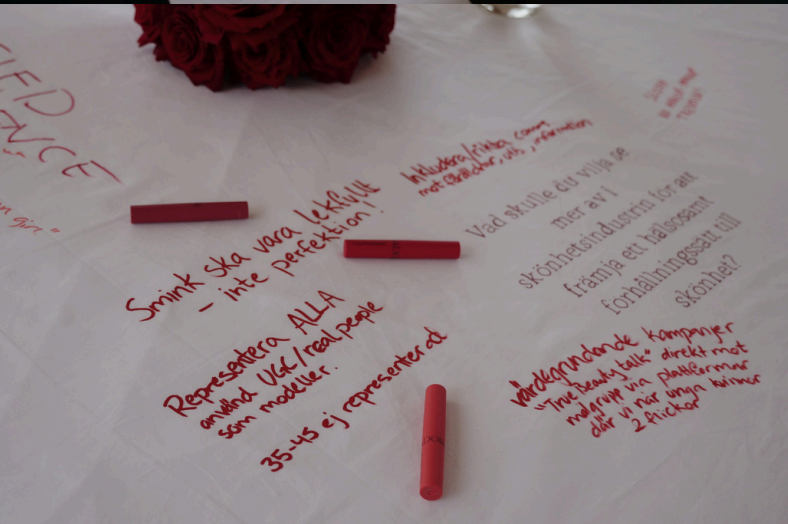 ENCE
Inkludera/rikta comm
mot föräldrar, utb, information
Vad skulle du vilja se
mer av i
skönhetsindustrin för att
främja ett hälsosamt
förhållningssätt till
skönhet?
Smink ska vara lekfullt
– inte perfektion!
Representera ALLA
använd UGC/real people
som modeller.
35-45 ej representerad
värdegrundande kampanjer
"True Beauty talk" direkt mot
målgrupp via plattformar
där vi når unga kvinnor
& flickor